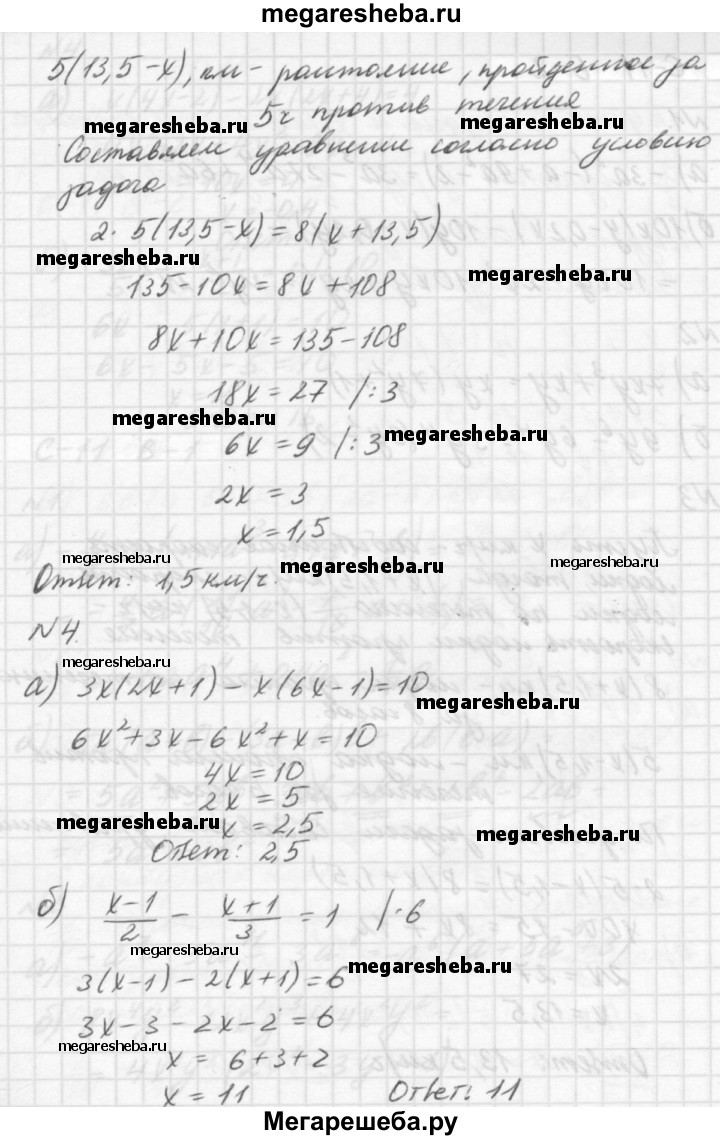 megaresheba.ru
5(13,5-x), км - расстояние, пройденное за
5ч против течения
megaresheba.ru megaresheba.ru
Составляем уравнение согласно условию
2·5(13,5-x)=8(x+13,5)
megaresheba.ru megaresheba.ru
135-10x=8x+108
8x+10x=135-108
18x=27 /:3
megaresheba.ru megaresheba.ru
6x=9 /:3
2x=3
x=1,5
megaresheba.ru megaresheba.ru megaresheba.ru
Ответ: 1,5 км/ч.
N4.
megaresheba.ru
а) 3x(2x+1)-x(6x-1)=10
megaresheba.ru
6x²+3x-6x²+x=10
4x=10
2x=5
megaresheba.ru x=2,5 megaresheba.ru
Ответ: 2,5
б) x-1/2 - x+1/3 = 1 /·6
megaresheba.ru
3(x-1)-2(x+1)=6 megaresheba.ru
3x-3-2x-2=6
megaresheba.ru x=6+3+2
x=11 Ответ: 11
Мегарешеба.ру